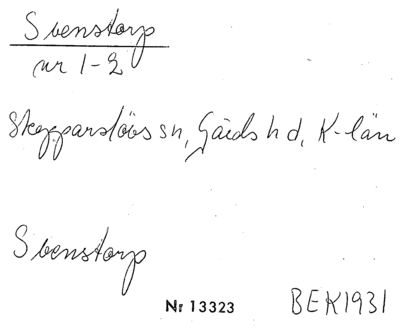 Svenstorp
nr 1-2
Skepparslövs sn, Gärds hd, K-län
Svenstorp
Nr 13323 BEK1931